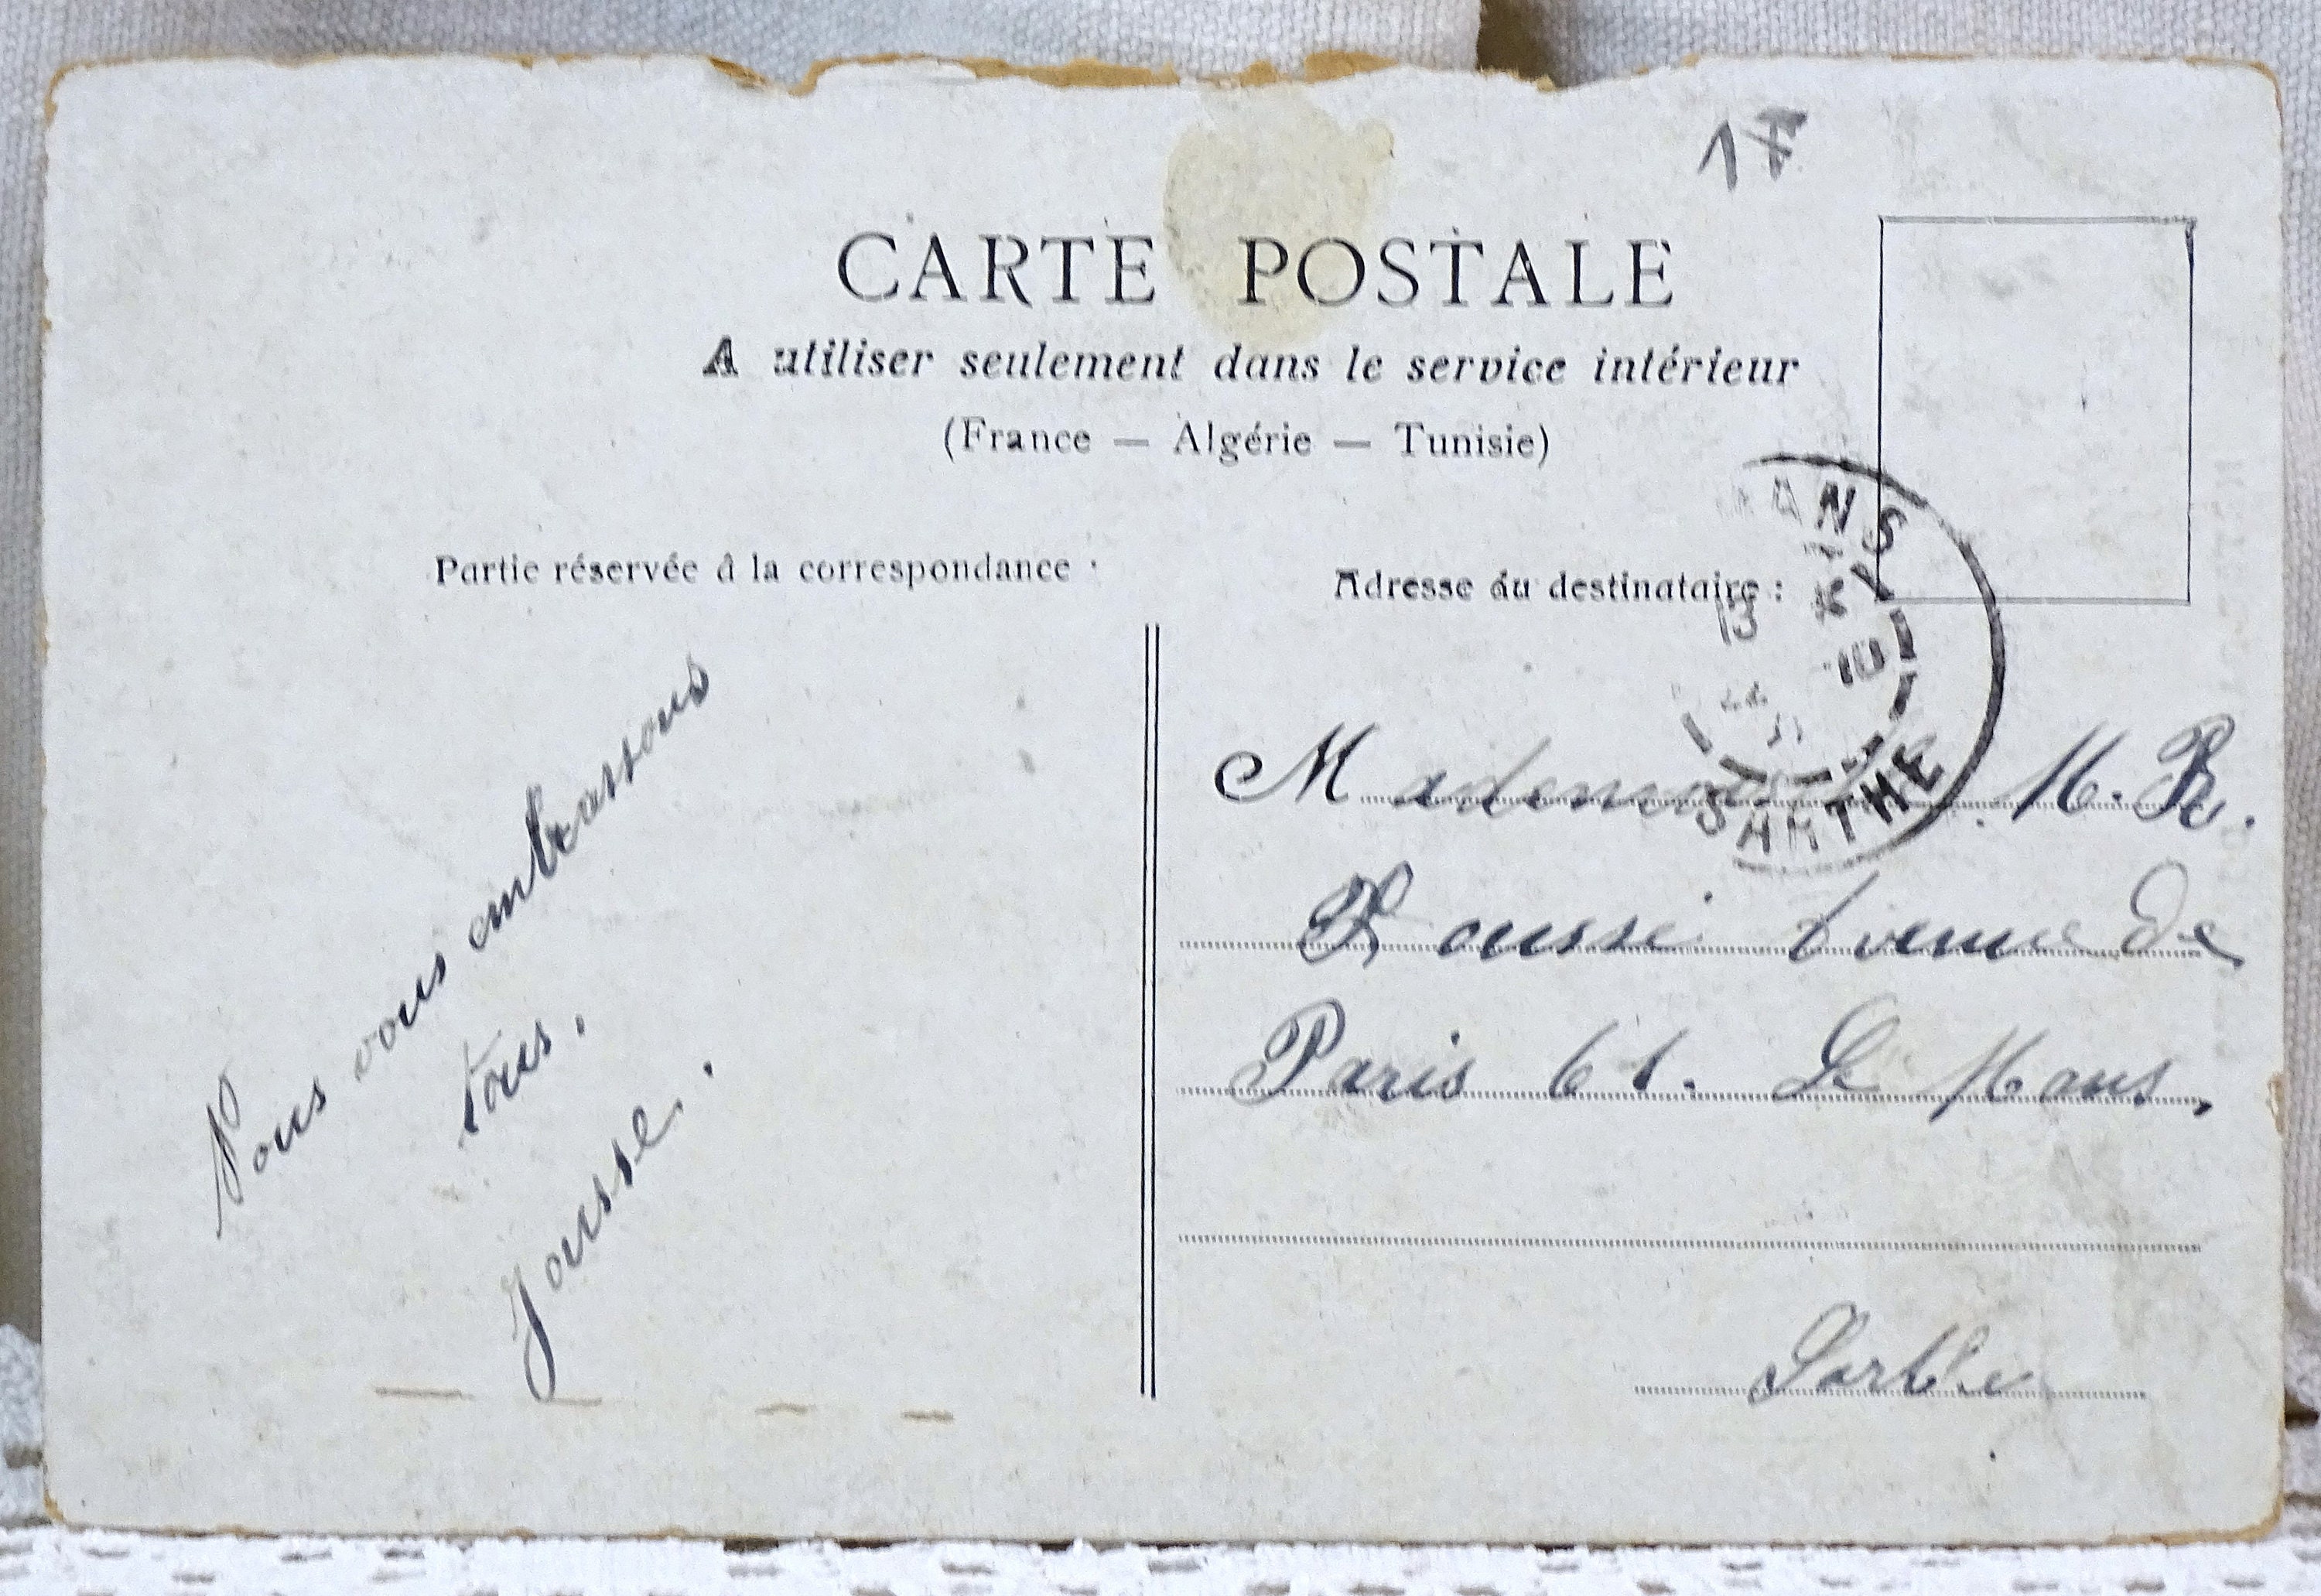 1F
CARTE POSTALE
A utiliser seulement dans le service intérieur
(France — Algérie — Tunisie)
Partie réservée à la correspondance :
Adresse du destinataire :
ANS
13
10
SARTHE
Nous vous embrassons
tous.
Jousse.
Mademoiselle M. R.
Avenue de
Paris 61. Le Mans,
Sarthe